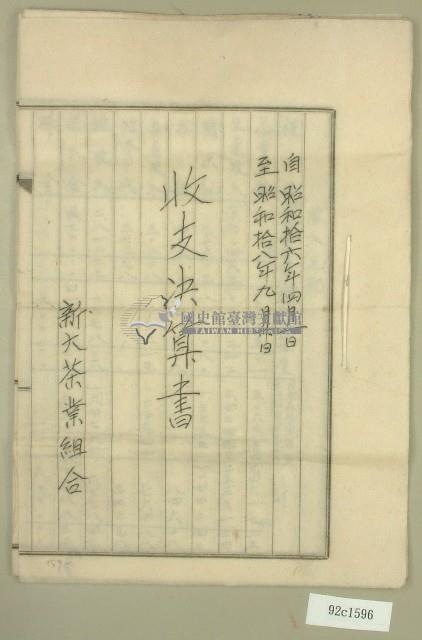 自昭和拾六年四月一日
至昭和拾八年九月 日
收支決算書
新大茶業組合
國史館臺灣文獻館
TAIWAN HIST
1595
92c1596